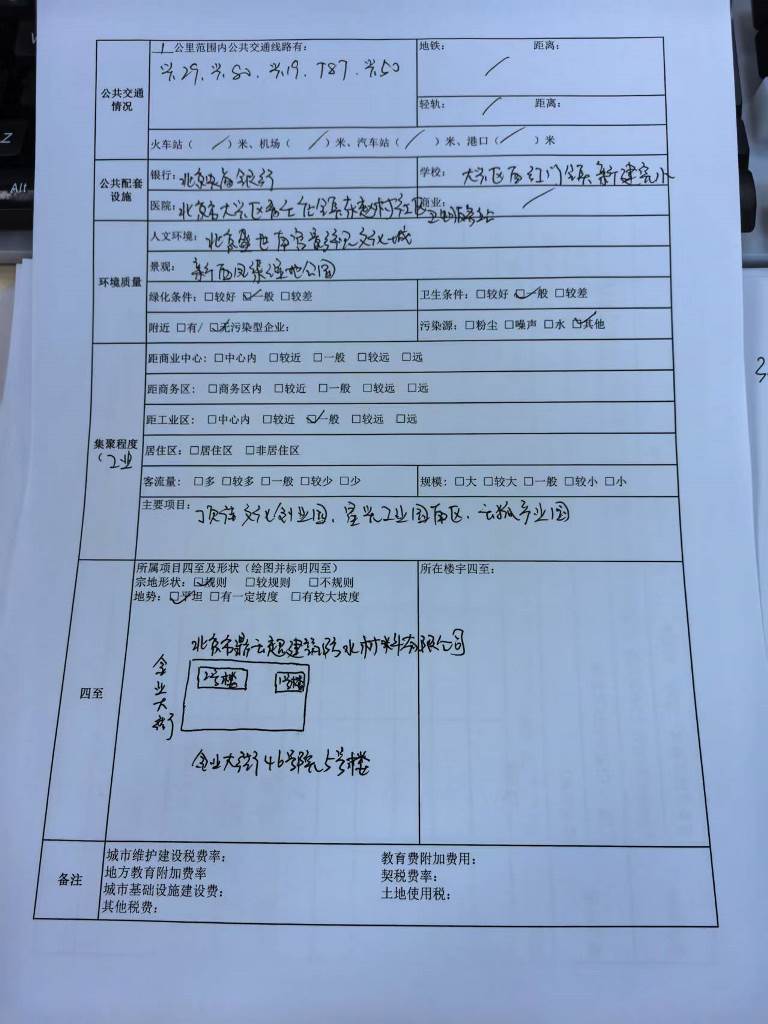 公共交通情况
1 公里范围内公共交通线路有：
兴29、兴80、兴19、T87、兴50
地铁： / 距离：
轻轨： / 距离：
火车站（ / ）米、机场（ / ）米、汽车站（ / ）米、港口（ / ）米
公共配套设施
银行：北京农商银行
学校：大兴区西红门镇新建完小
医院：北京市大兴区
卫生服务站
商业： /
环境质量
人文环境：
文化城
景观：新西凤渠湿地公园
绿化条件：□较好 ☑一般 □较差
卫生条件：□较好 ☑一般 □较差
附近 □有/ ☑无污染型企业：
污染源：□粉尘 □噪声 □水 ☑其他
集聚程度
（工业
距商业中心：□中心内 □较近 □一般 □较远 □远
距商务区：□商务区内 □较近 □一般 □较远 □远
距工业区：□中心内 □较近 ☑一般 □较远 □远
居住区：□居住区 □非居住区
客流量：□多 □较多 □一般 □较少 □少
规模：□大 □较大 □一般 □较小 □小
主要项目：
文化创业园、宏兴工业园南区、
产业园
四至
所属项目四至及形状（绘图并标明四至）
宗地形状：☑规则 □较规则 □不规则
地势：☑平坦 □有一定坡度 □有较大坡度
所在楼宇四至：
北京市鼎云超建筑防水材料有限公司
金业大街
2号楼
1号楼
金业大街46号院5号楼
备注
城市维护建设税费率：
教育费附加费用：
地方教育附加费率
契税费率：
城市基础设施建设费：
土地使用税：
其他税费：